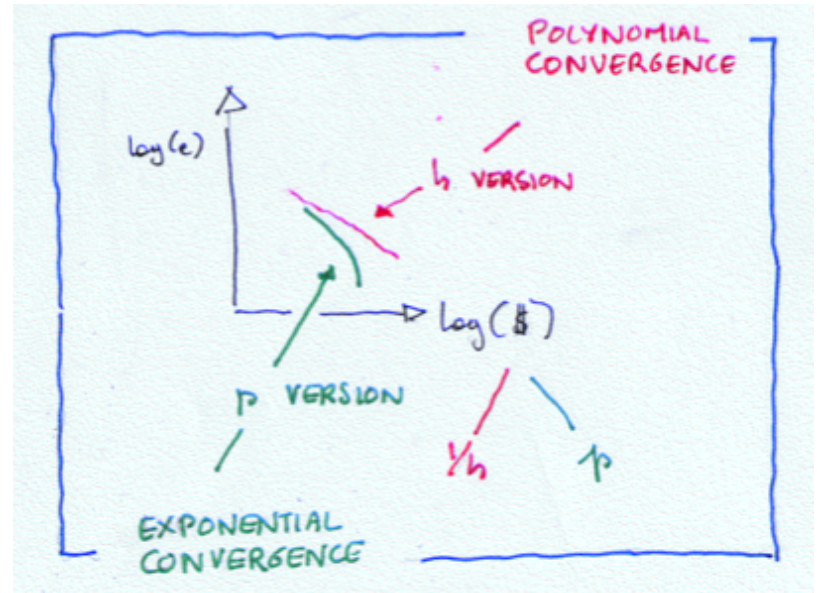 POLYNOMIAL
CONVERGENCE
log(e)
h VERSION
log($)
p VERSION
1/h
p
EXPONENTIAL
CONVERGENCE